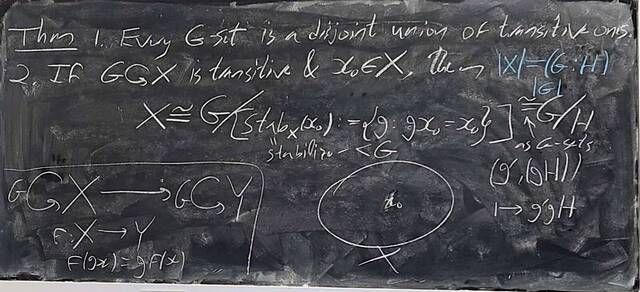 Thm 1. Every G-set is a disjoint union of transitive ones
2. If G↻X is tansitive & x₀∈X, then |X|=(G:H)
|G|
X ≅ G/[stab_X(x₀) := {g : gx₀ = x₀}] ≅ G/H
"stabilizer" < G
as G-sets
(g', (gH))
↦ g'gH
G↻X ⟶ G↻Y
F: X → Y
F(gx) = gF(x)
x₀
X